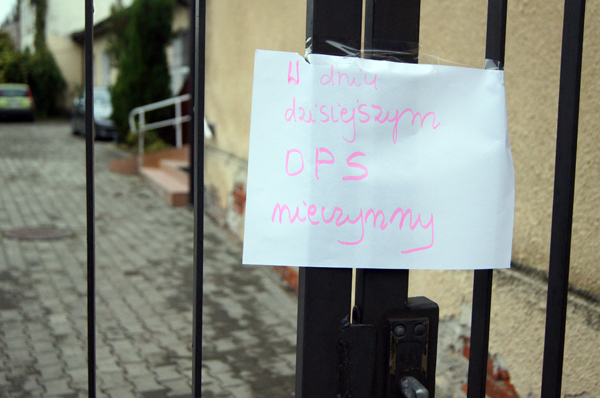 W dniu
dzisiejszym
DPS
nieczynny